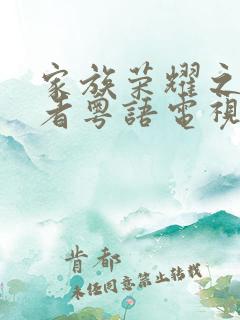 家族荣耀之
者粤語電視
肯都
未经同意禁止转载